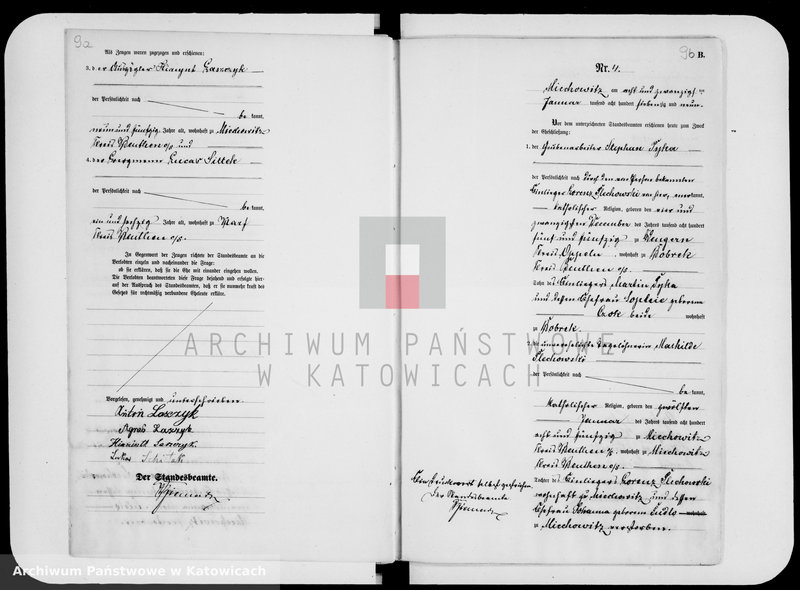 9a
Als Zeugen waren zugezogen und erschienen:
3. der Hiacynt Laszczyk
der Persönlichkeit nach
be kannt,
neunundfünfzig Jahre alt, wohnhaft zu Miechowitz
Kreis Beuthen o/s und
4. der Bergmann Lucas
der Persönlichkeit nach
be kannt,
ein und sechzig Jahre alt, wohnhaft zu
Kreis Beuthen o/s.
In Gegenwart der Zeugen richtete der Standesbeamte an die
Verlobten einzeln und nacheinander die Frage:
ob sie erklären, daß sie die Ehe mit einander eingehen wollen.
Die Verlobten beantworteten diese Frage bejahend und erfolgte hier-
auf der Ausspruch des Standesbeamten, daß er sie nunmehr kraft des
Gesetzes für rechtmäßig verbundene Eheleute erkläre.
Vorgelesen, genehmigt und unterschrieben
Laszczyk
Agnes
Der Standesbeamte.
9b B.
Nr. 4.
Miechowitz am acht und zwanzigsten
Januar tausend acht hundert siebenzig und neun.
Vor dem unterzeichneten Standesbeamten erschienen heute zum Zweck
der Eheschließung:
1. der Grubenarbeiter Stephan Tyka
der Persönlichkeit nach durch den von Person bekannten
Einlieger Lorenz Slechowski von hier, anerkannt,
katholischer Religion, geboren den vier und
zwanzigsten December des Jahres tausend acht hundert
fünf und fünfzig zu Dengern
Kreis Oppeln, wohnhaft zu Bobrek
Kreis Beuthen o/s.
Sohn des Einliegers Martin Tyka
und dessen Ehefrau Sophie geborene
beide wohnhaft
zu Bobrek.
2. die unverehelichte Tagelöhnerin Mathilde
Slechowski
der Persönlichkeit nach
be kannt,
katholischer Religion, geboren den zwölften
Januar des Jahres tausend acht hundert
acht und fünfzig zu Miechowitz
Kreis Beuthen o/s, wohnhaft zu Miechowitz
Kreis Beuthen o/s.
Tochter des Einliegers Lorenz Slechowski
wohnhaft zu Miechowitz und dessen
Ehefrau Johanna geborenen
zu Miechowitz verstorben.
Der Standesbeamte
ARCHIWUM PAŃSTWOWE
W KATOWICACH
Archiwum Państwowe w Katowicach